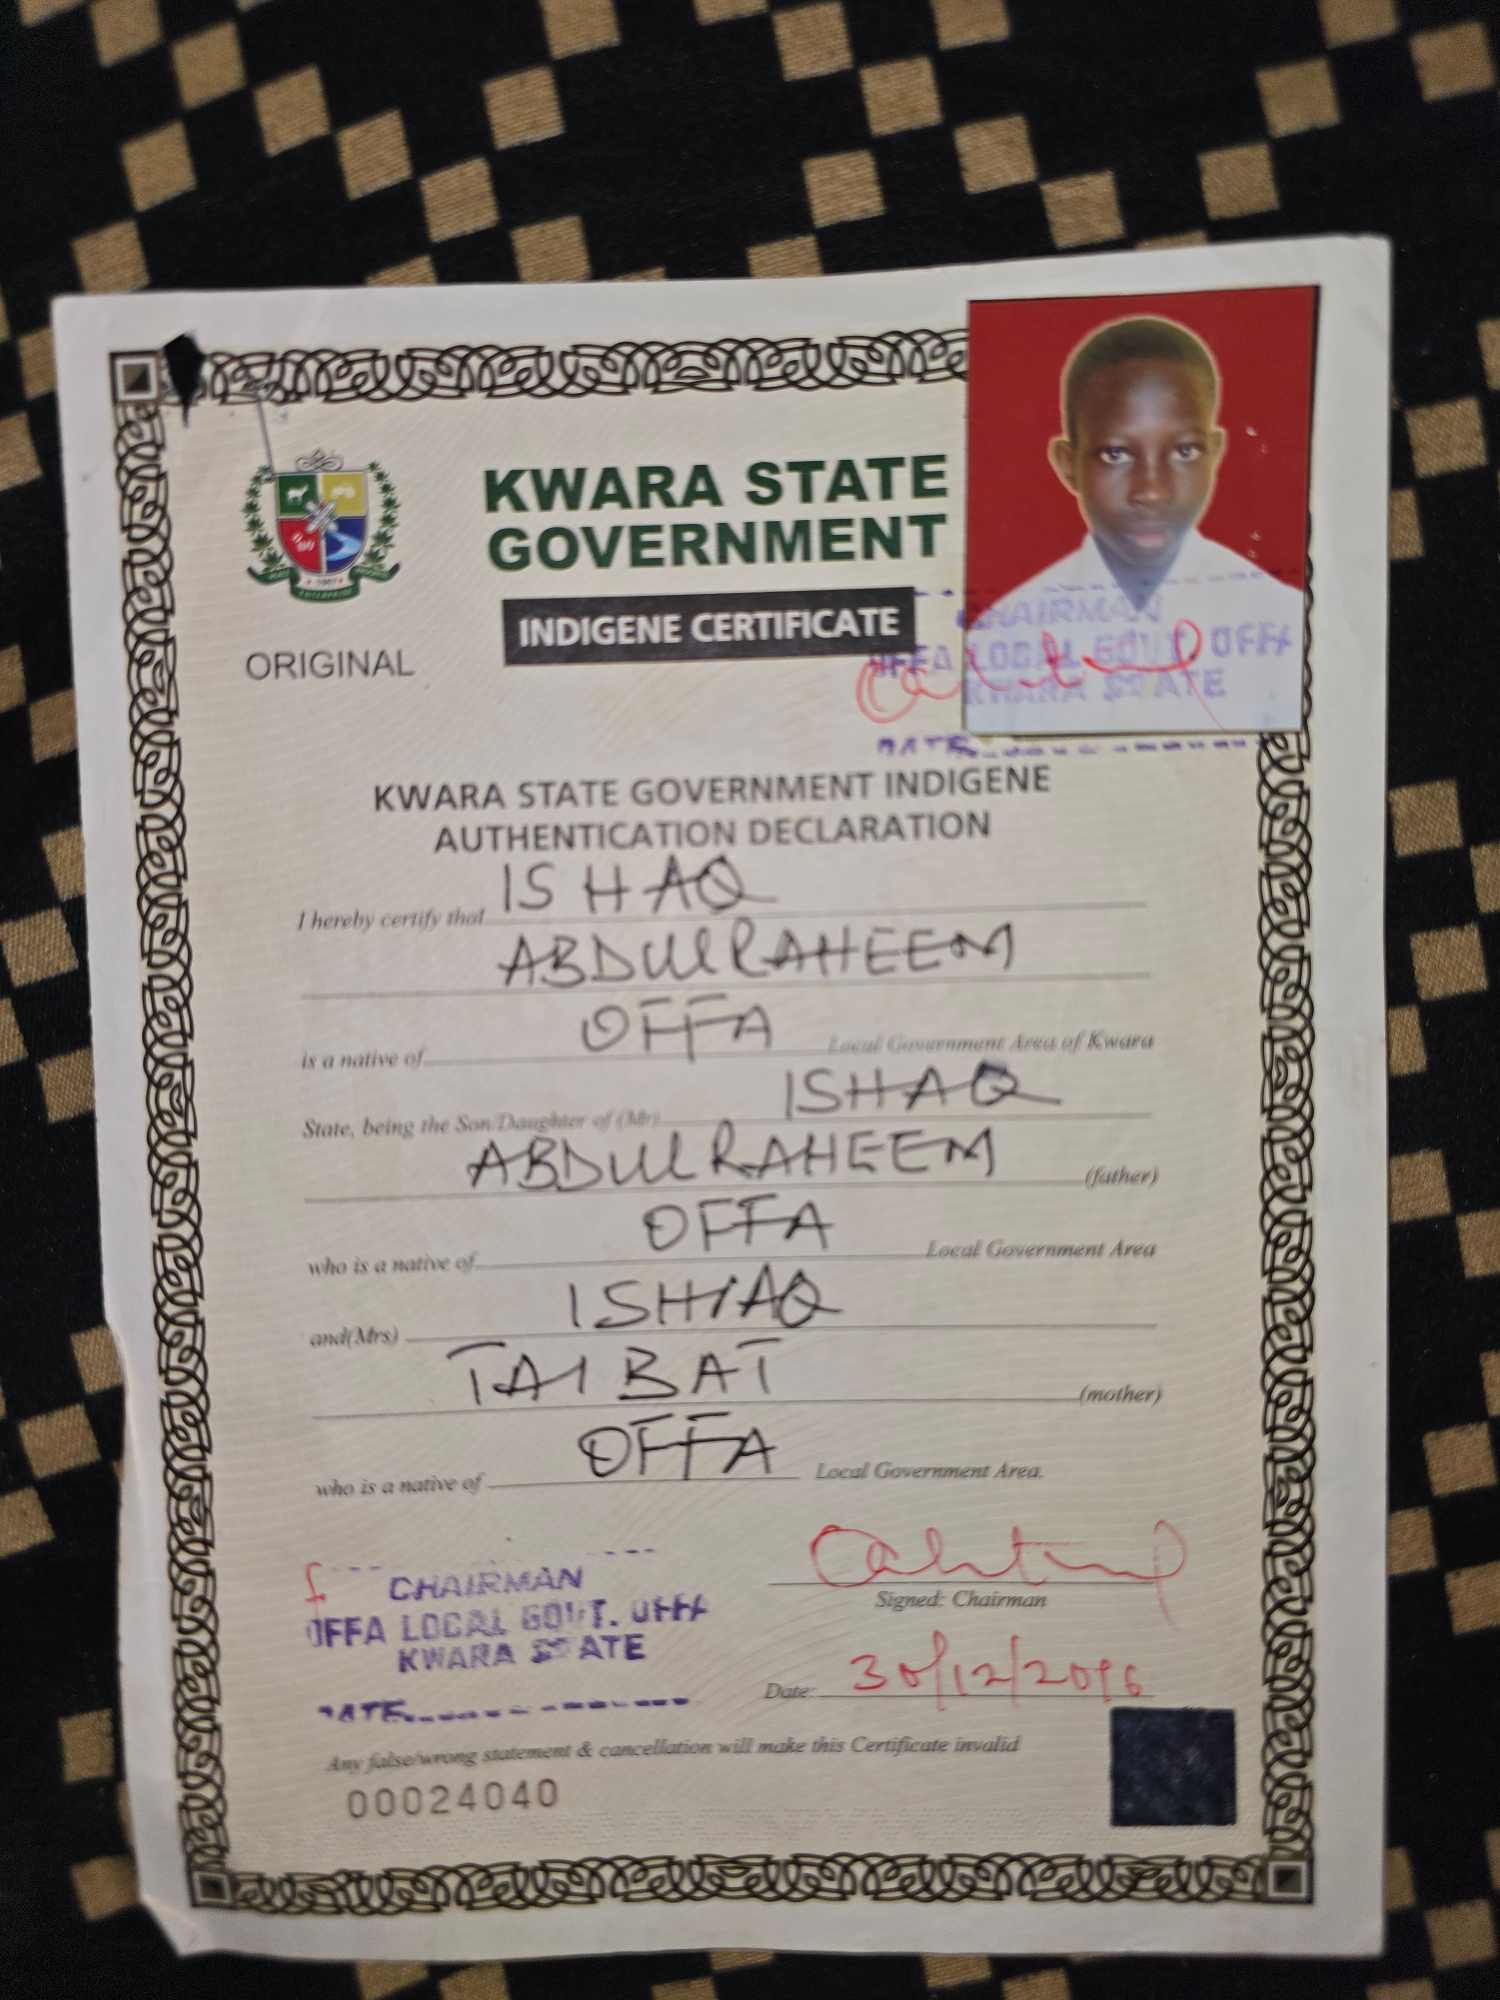 KWARA STATE
GOVERNMENT
INDIGENE CERTIFICATE
ORIGINAL
CHAIRMAN
OFFA LOCAL GOVT. OFFA
KWARA STATE
DATE
KWARA STATE GOVERNMENT INDIGENE
AUTHENTICATION DECLARATION
I hereby certify that ISHAQ
ABDULRAHEEM
is a native of OFFA Local Government Area of Kwara
State, being the Son/Daughter of (Mr) ISHAQ
ABDULRAHEEM (father)
who is a native of OFFA Local Government Area
and(Mrs) ISHIAQ
TAIBAT (mother)
who is a native of OFFA Local Government Area.
CHAIRMAN
OFFA LOCAL GOVT. OFFA
KWARA STATE
DATE
Signed: Chairman
Date: 30/12/2016
Any false/wrong statement & cancellation will make this Certificate invalid
00024040